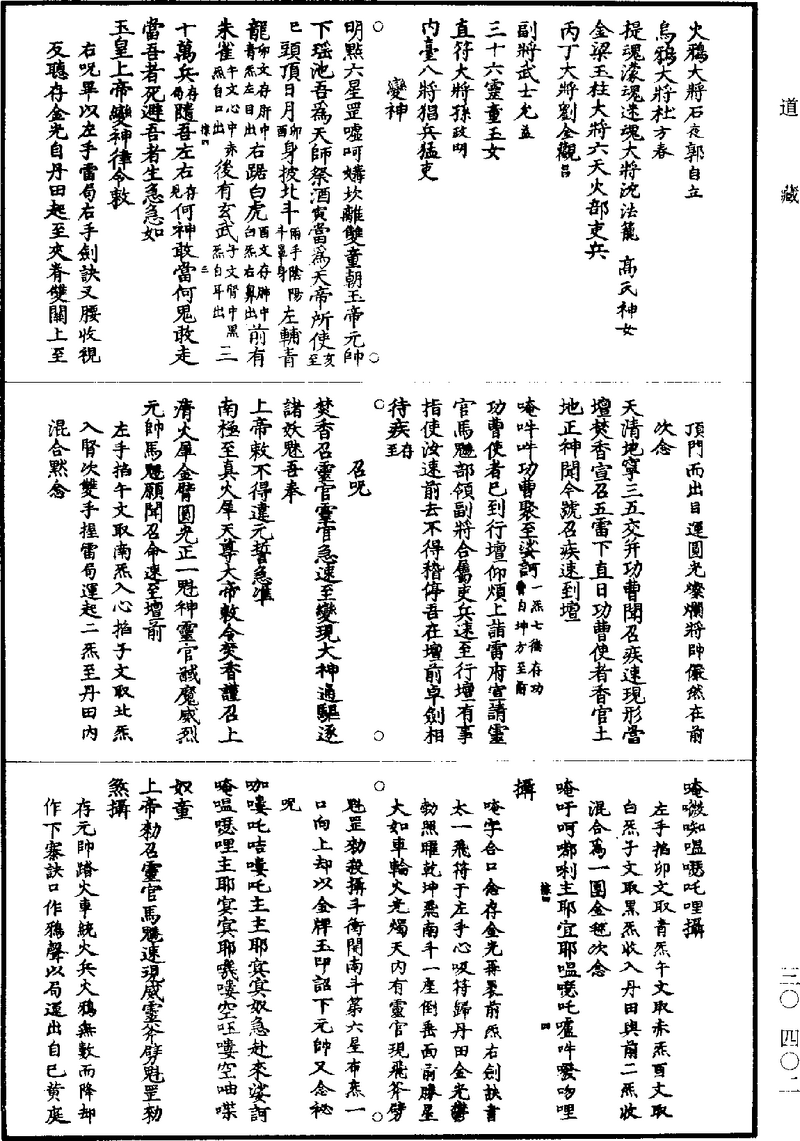 道藏
三〇 四〇二
火鴉大將石夜郭自立
烏鴉大將杜方春
提魂濛魂迷魂大將沈法籠 高氏神女
金梁玉柱大將六天火部吏兵
丙丁大將劉金觀呂
副將武士尤益
三十六靈童玉女
直符大將孫政明
内臺八將猖兵猛吏
變神
明點六星罡噓呵嫊坎離雙童朝玉帝元帥
下瑶池吾爲天師祭酒寅當爲天帝所使亥至
巳頭頂日月卯酉身披北斗兩手陰陽斗罩身左輔青
龍卯文存肝中青炁左目出右踞白虎酉文存肺中白炁右鼻出前有
朱雀午文心中赤炁自口出後有玄武子文腎中黑炁自耳出三
十萬兵存局隨吾左右存見何神敢當何鬼敢走
當吾者死避吾者生急急如
玉皇上帝變神律令敕
右呪畢以左手雷局右手劍訣叉腰收視
反聽存金光自丹田起至夾脊雙關上至
頂門而出目運圓光燦爛將帥儼然在前
次念
天清地寧三五交并功曹聞召疾速現形當
壇焚香宣召五雷下直日功曹使者香官土
地正神聞今號召疾速到壇
唵吽吽功曹聚至娑訶一炁七徧存功曹自坤方至前
功曹使者已到行壇仰煩上詣雷府宣請靈
官馬魕部領副將合屬吏兵速至行壇有事
指使汝速前去不得稽停吾在壇前卓劍相
待疾存至
召呪
焚香召靈官靈官急速至變現大神通驅逐
諸妖魅吾奉
上帝敕不得違元誓急准
南極至真火犀天尊大帝敕令焚香謹召上
清火犀金臂圓光正一魁神靈官馘魔威烈
元帥馬魕願聞召命速至壇前
左手掐午文取南炁入心掐子文取北炁
入腎次雙手握雷局運起二炁至丹田内
混合默念
唵微㗧嗢𠹌吒哩攝
左手掐卯文取青炁午文取赤炁酉文取
白炁子文取黑炁收入丹田與前二炁收
混合萬一團金毬次念
唵吁呵嘟唎主耶宜耶嗢𠹌吒嚧吽發吻哩
攝
唵字合口念存金光再聚前炁右劍訣書
太一飛符于左手心吸符歸丹田金光鬱
勃照曜乾坤飛南斗一座倒垂面前滕星
大如車輪火光燭天内有靈官現飛斧劈
魁罡勑殺攝斗衝開南斗第六星布炁一
口向上却以金牌玉印詔下元帥又念祕
呪
咖嘍吒咭嘍吒主主耶宾宾奴急赴來娑訶
唵嗢𠹌哩主耶宾宾耶嘰嘍空㕶嘍空啒喋
奴童
上帝勑召靈官馬魕速現威靈斧劈魁罡勑
煞攝
存元帥踏火車統火兵火鴉無數而降却
作下寨訣口作鴉聲以局運出自己黄庭